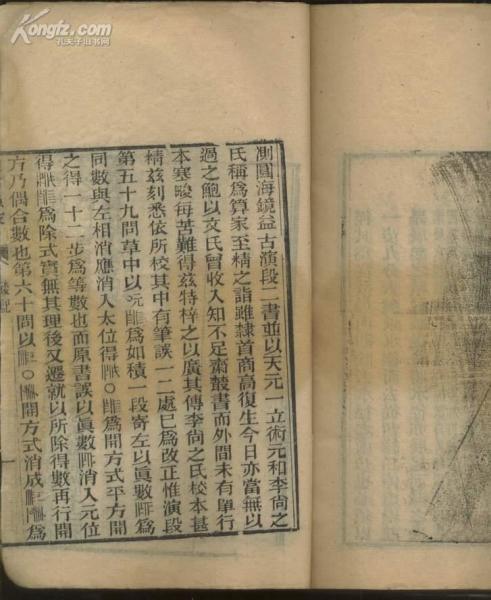 测圓海鏡益古演段二書並以天元一立術元和李尚之
氏稱爲算家至精之詣雖隸首商高復生今日亦當無以
過之鮑以文氏曾收入知不足齋叢書而外間未有單行
本寒畯每苦難得茲特梓之以廣其傳李尚之氏校本甚
精茲刻悉依所校其中有筆誤一二處已爲改正惟演段
第五十九問草中以元爲如積一段寄左以眞數爲
同數與左相消應消入太位得〇爲開方式平方開
之得一十二步爲等數也而原書誤以眞數消入元位
得爲除式實無其理後又遷就以所除得數再行開
方乃偶合數也第六十問以〇開方式消成〇爲
Kongfz.com
孔夫子旧书网